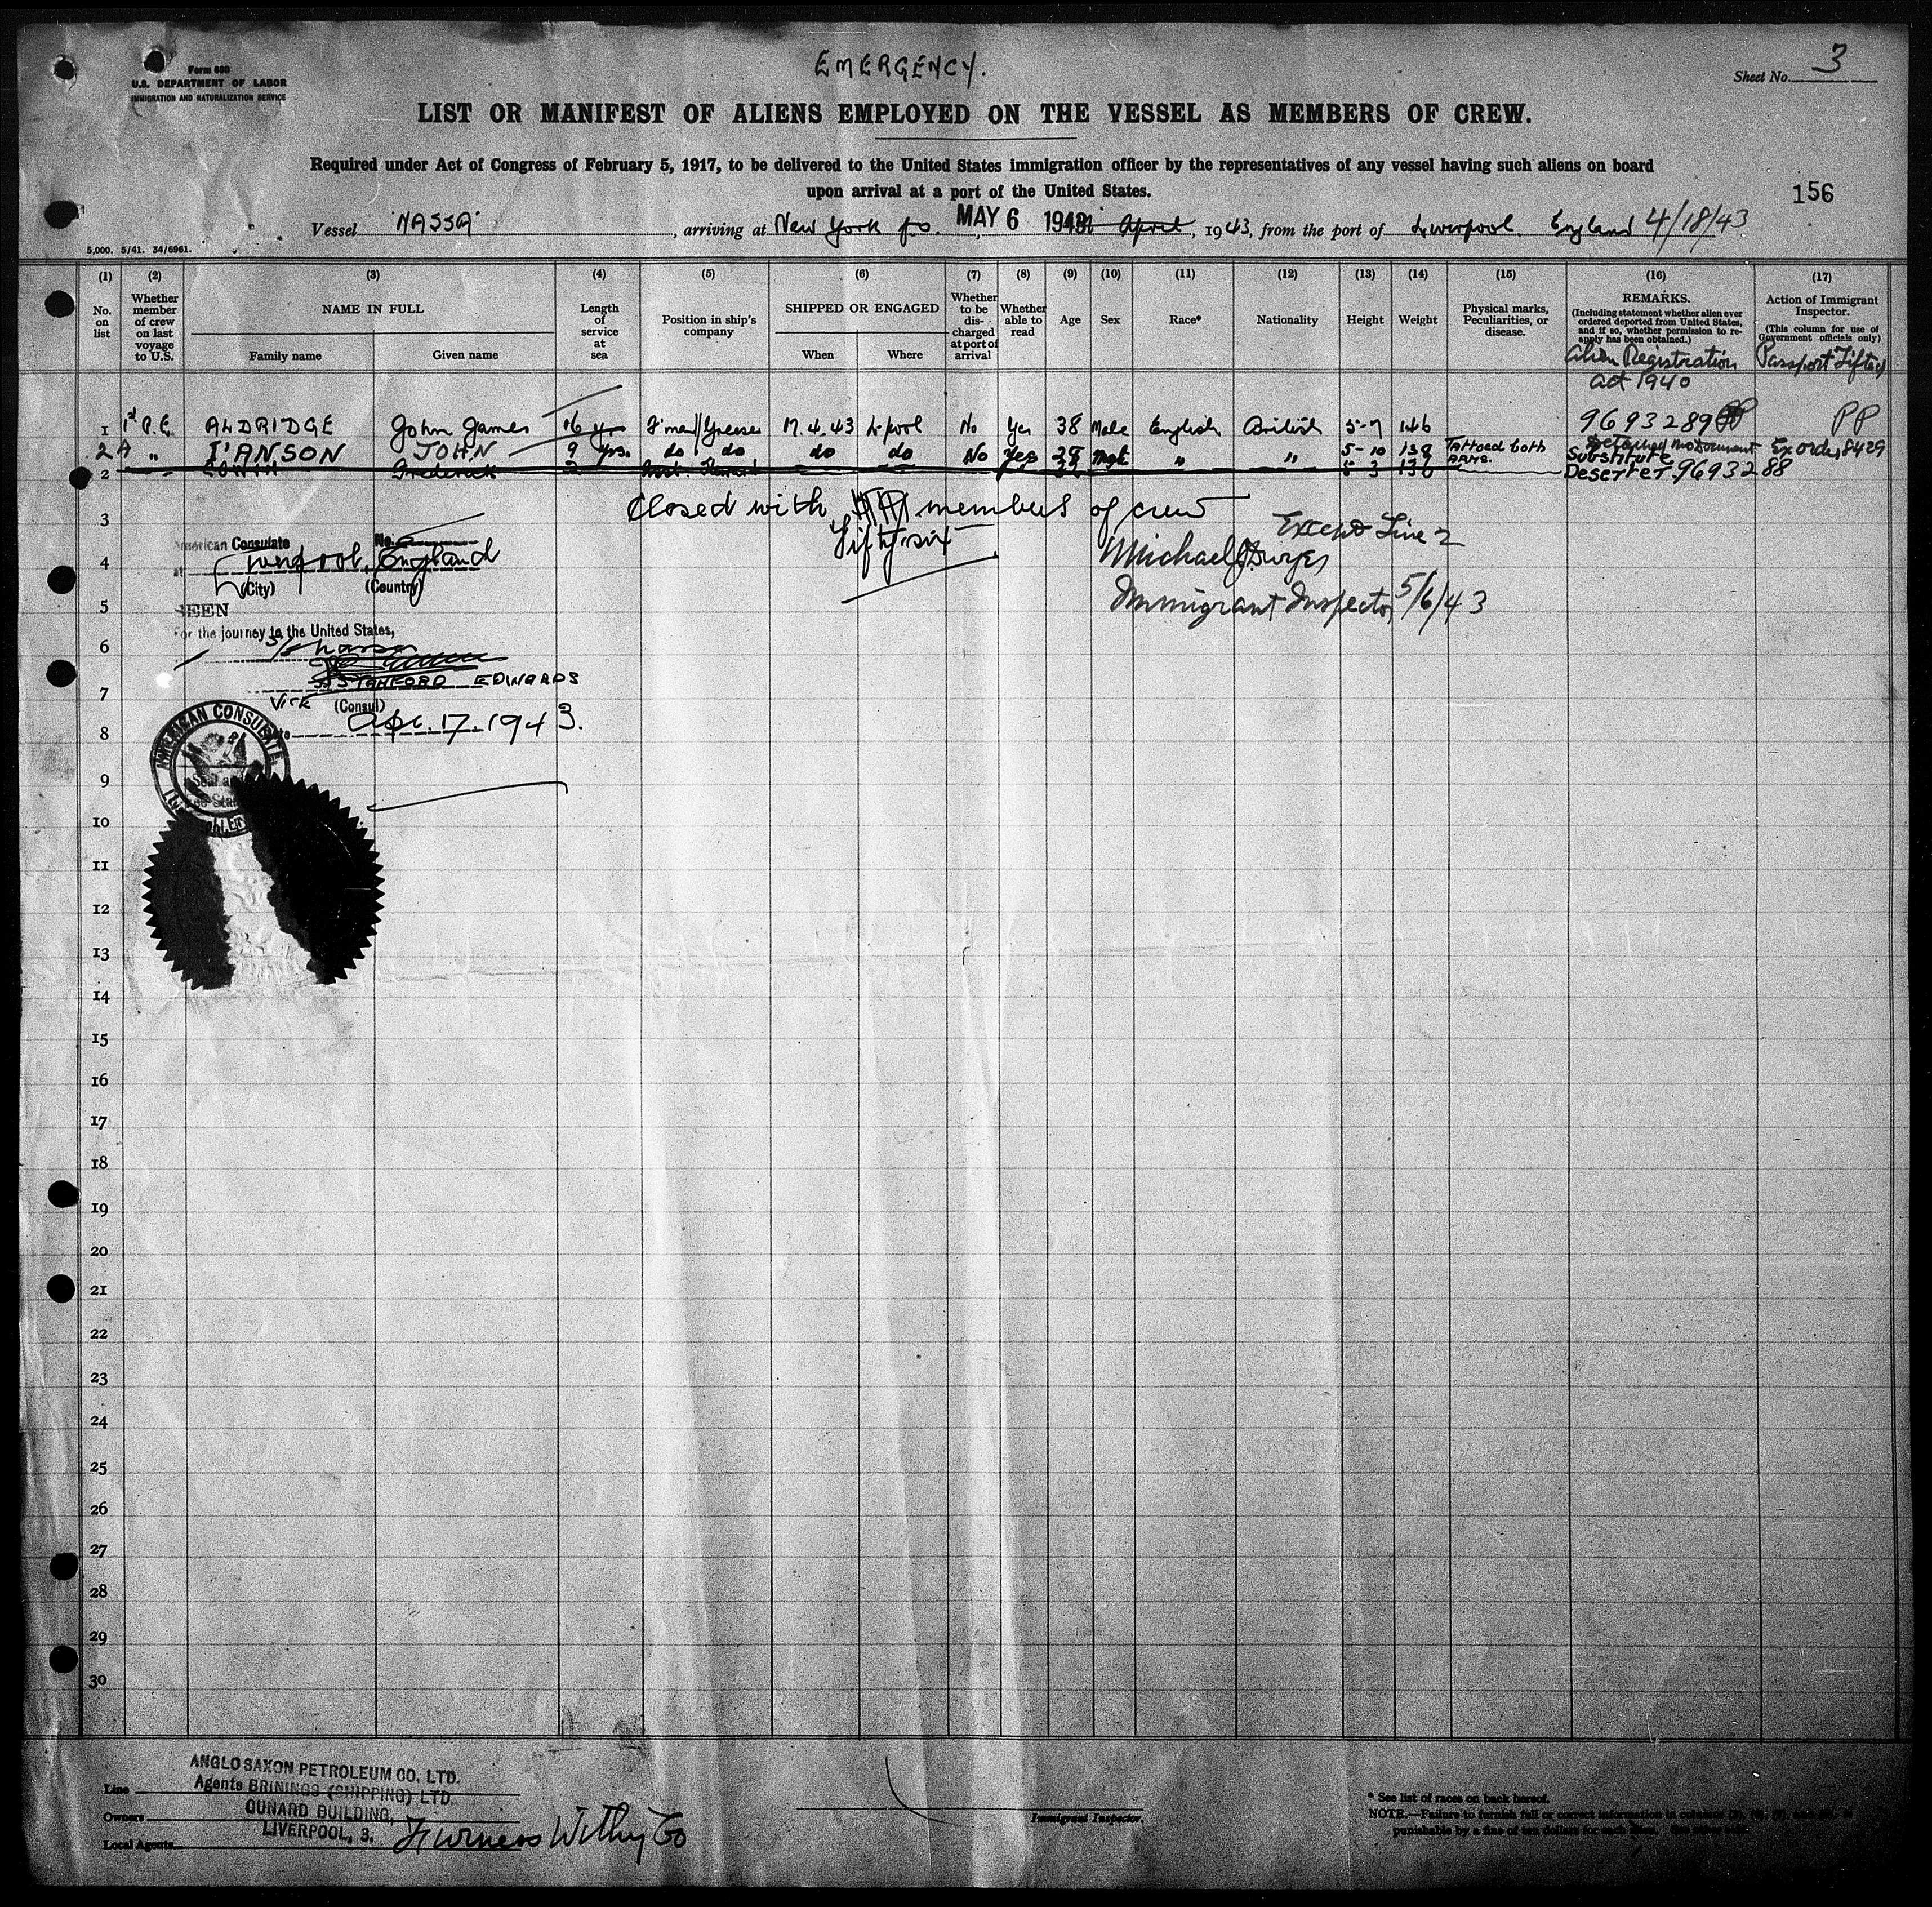 Form 680
U.S. DEPARTMENT OF LABOR
IMMIGRATION AND NATURALIZATION SERVICE
EMERGENCY.
Sheet No. 3
LIST OR MANIFEST OF ALIENS EMPLOYED ON THE VESSEL AS MEMBERS OF CREW.
Required under Act of Congress of February 5, 1917, to be delivered to the United States immigration officer by the representatives of any vessel having such aliens on board
upon arrival at a port of the United States.
156
Vessel "NASSA", arriving at New York MAY 6 1943 April, 1943, from the port of Liverpool. England 4/18/43
5,000. 5/41. 34/6961.
(1) (2) (3) (4) (5) (6) (7) (8) (9) (10) (11) (12) (13) (14) (15) (16) (17)
No. on list
Whether member of crew on last voyage to U.S.
NAME IN FULL
Family name
Given name
Length of service at sea
Position in ship's company
SHIPPED OR ENGAGED
When
Where
Whether to be dis-charged at port of arrival
Whether able to read
Age
Sex
Race*
Nationality
Height
Weight
Physical marks, Peculiarities, or disease.
REMARKS.
(Including statement whether alien ever ordered deported from United States, and if so, whether permission to re-apply has been obtained.)
Alien Registration
act 1940
Action of Immigrant Inspector.
(This column for use of Government officials only)
Passport Lifted
1 ALDRIDGE John James 16 yrs F'man/Greaser 17.4.43 L'pool No Yes 38 Male English British 5-7 146 9693289 PP
2 A " I'ANSON JOHN 9 yrs. do do do do No Yes 28 Male " " 5-10 138 Tattoed both ARMS. Substitute Ex order 8429
2 Frederick 2 Asst. Steward 5 3 136 Deserter. 9693288
Closed with members of crew
Fifty-six
Except Line 2
Michael J. Dwyer
Immigrant Inspector 5/6/43
3
American Consulate No.
4
at Liverpool, England
(City) (Country)
5
SEEN
For the journey to the United States,
6
S/S Nassa
STANFORD EDWARDS
7
VICE (Consul)
8
Apr. 17. 1943.
AMERICAN CONSULATE
9
10
11
12
13
14
15
16
17
18
19
20
21
22
23
24
25
26
27
28
29
30
ANGLO SAXON PETROLEUM CO. LTD.
Line Agents BRININGS (SHIPPING) LTD.
Owners CUNARD BUILDING,
LIVERPOOL, 3.
Local Agents Furness Withy Co
Immigrant Inspector.
* See list of races on back hereof.
NOTE.—Failure to furnish full or correct information in columns
punishable by a fine of ten dollars for each alien.